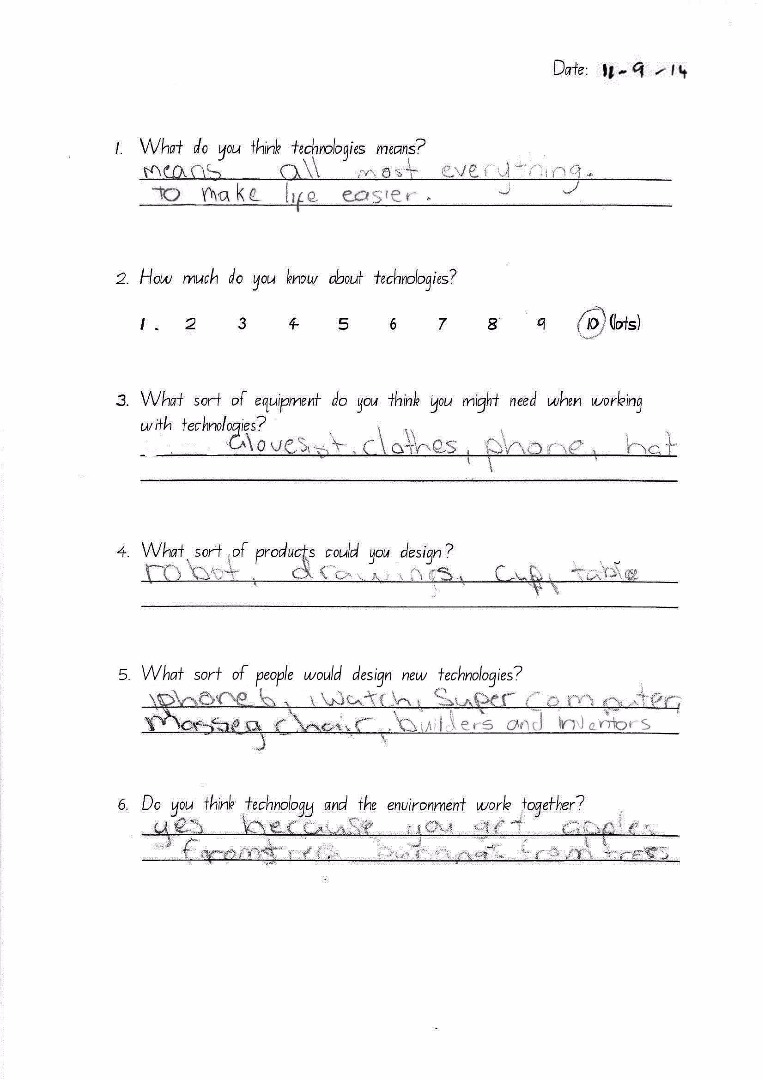 Date: 11-9-14
1. What do you think technologies means?
means all most everything.
to make life easier.
2. How much do you know about technologies?
1. 2 3 4 5 6 7 8 9 10 (lots)
3. What sort of equipment do you think you might need when working
with technologies?
clothes, phone, hat
4. What sort of products could you design?
robot, drawings, cup, table
5. What sort of people would design new technologies?
iphone 6, iwatch, Super Computer,
Massey chair, builders and inventors
6. Do you think technology and the environment work together?
yes because you get apples
from trees but not from tress